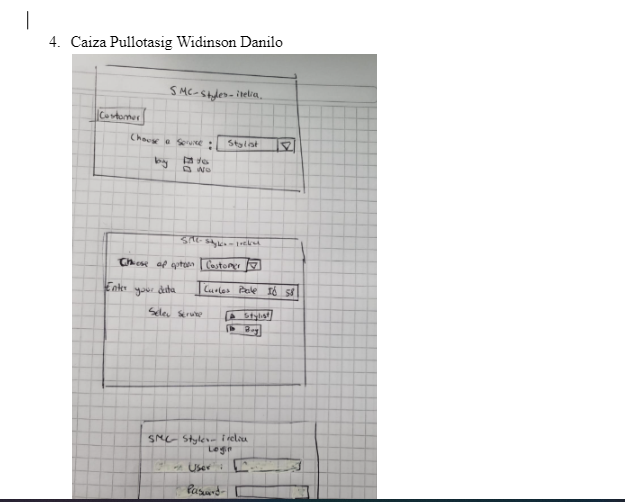 4. Caiza Pullotasig Widinson Danilo
SMC-Styles-irelia.
Customer
Choose a service : Stylist
buy Yes
NO
SMC-Styles-irelia
Choose op option Customer
Enter your data Carlos Id 58
Selec Service Stylist
Buy
SMC-Styles-irelia
Login
User :